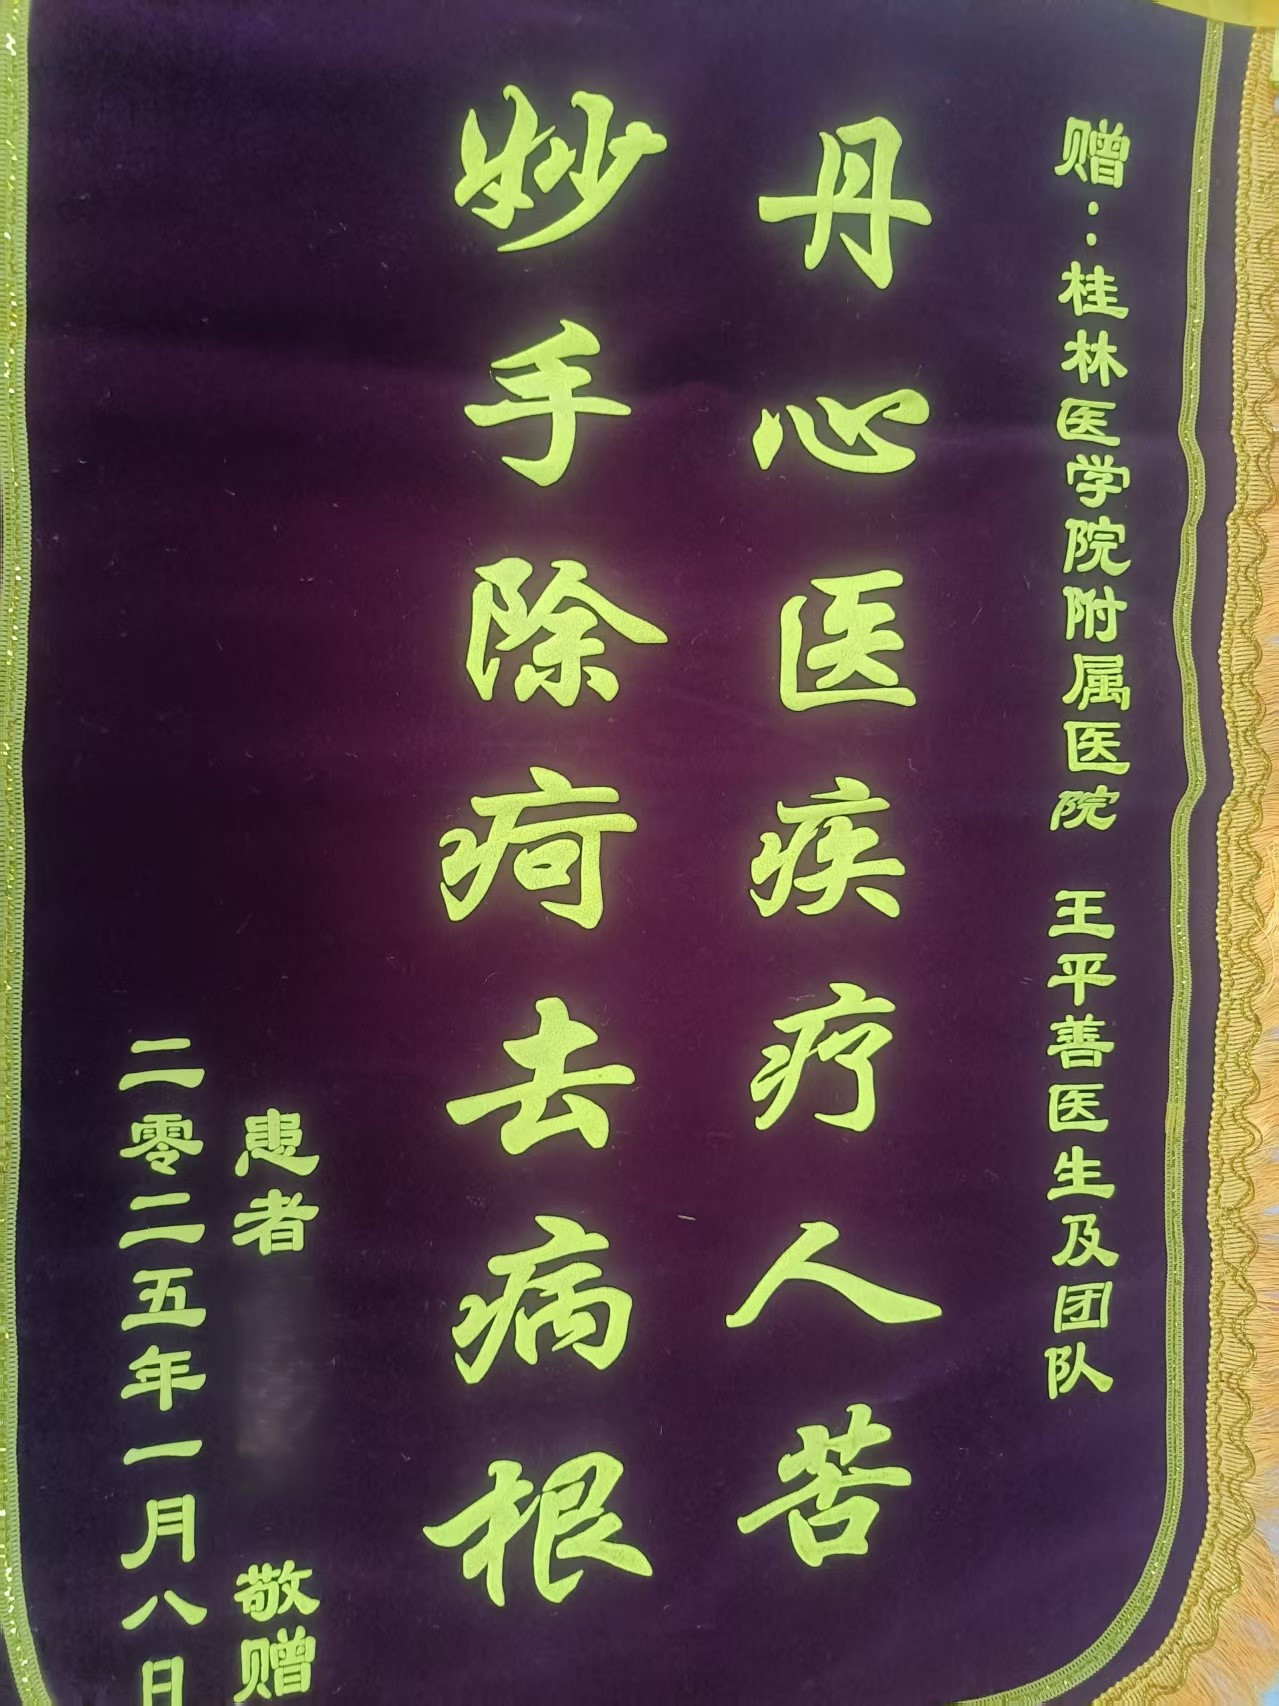 赠：桂林医学院附属医院 王平善医生及团队
丹心医疾疗人苦
妙手除疴去病根
患者 敬赠
二零二五年一月八日